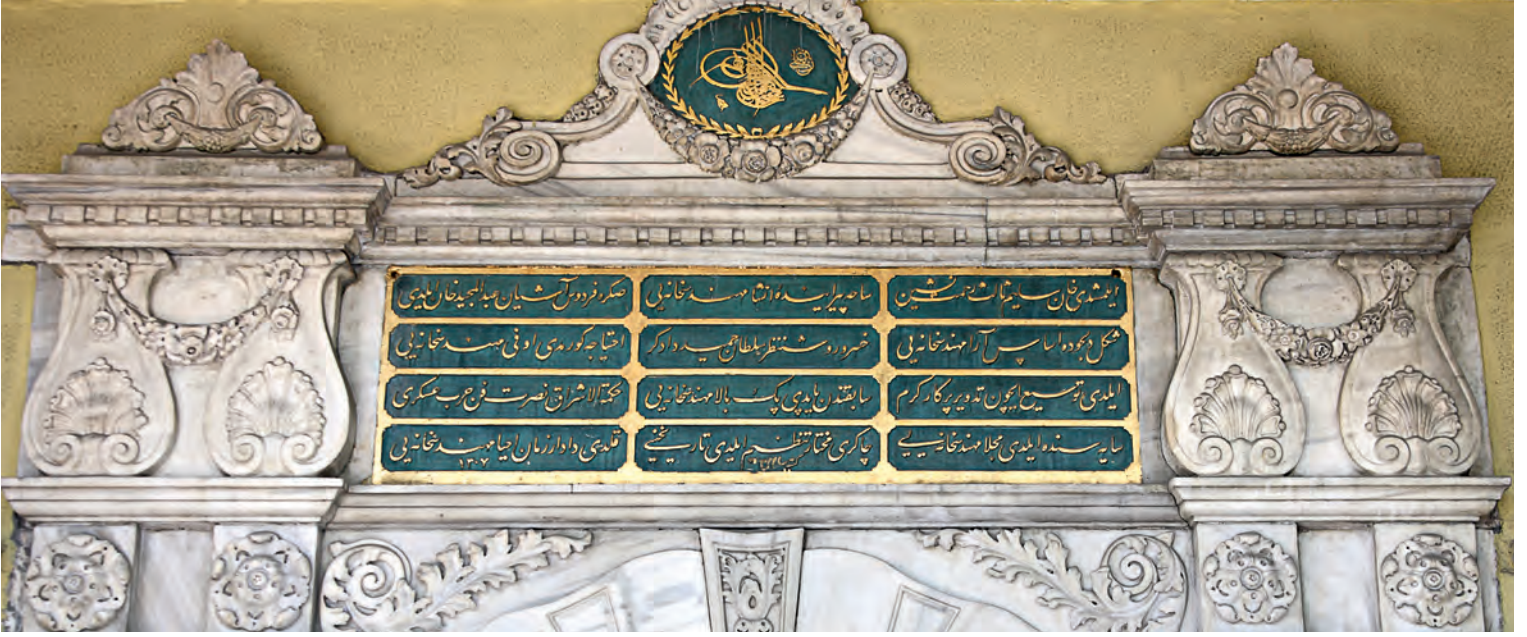 ایلمشدی خان سلیم ثالث جنت نشین
ساحه انشا مهندسخانه یی
صکره فردوس آشیان عبدالمجید خان ایلدی
شکل دلجوده اساس آرا مهندسخانه یی
خسرو روشن نظر سلطان حمید دادکر
احتیاجه کورمدی اوفی مهندسخانه یی
ایلدی توسیع ایچون تدویر پرکار کرم
سابقندن یاپدی پک بالا مهندسخانه یی
حکمة الاشراق نصرت فن حرب عسکری
سایه سنده ایلدی مجلا مهندسخانه یی
چاکری مختار تنظیم ایلدی تاریخنی
قلدی دادار زمان احیا مهندسخانه یی
۱۳۰۷